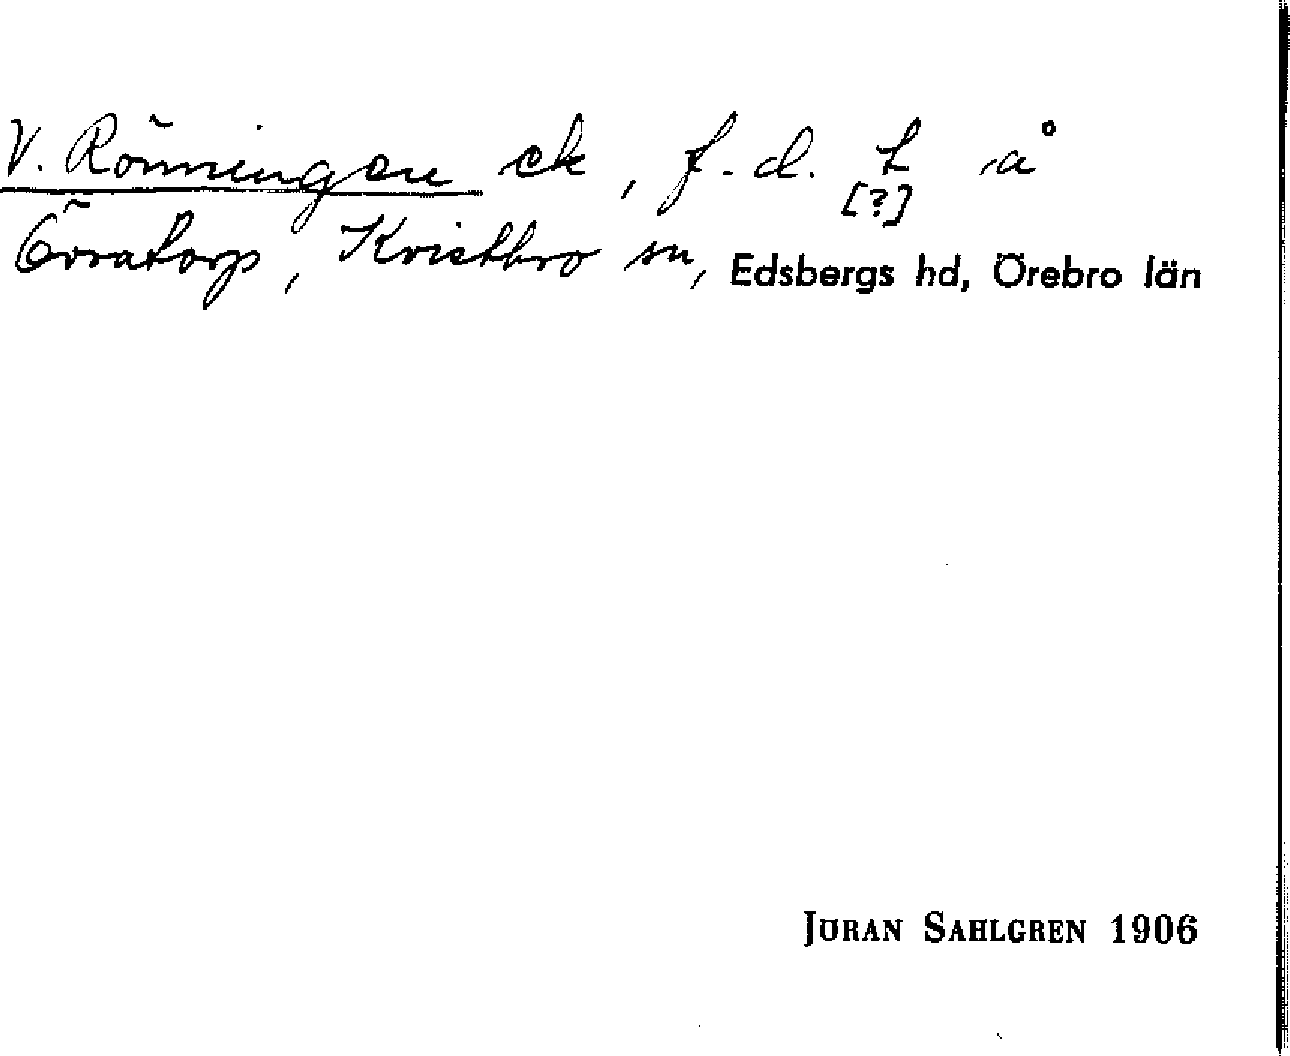 V. Rönningen ek, f.d. t å
[?]
Örratorp, Kvistbro sn, Edsbergs hd, Örebro län
JÖRAN SAHLGREN 1906